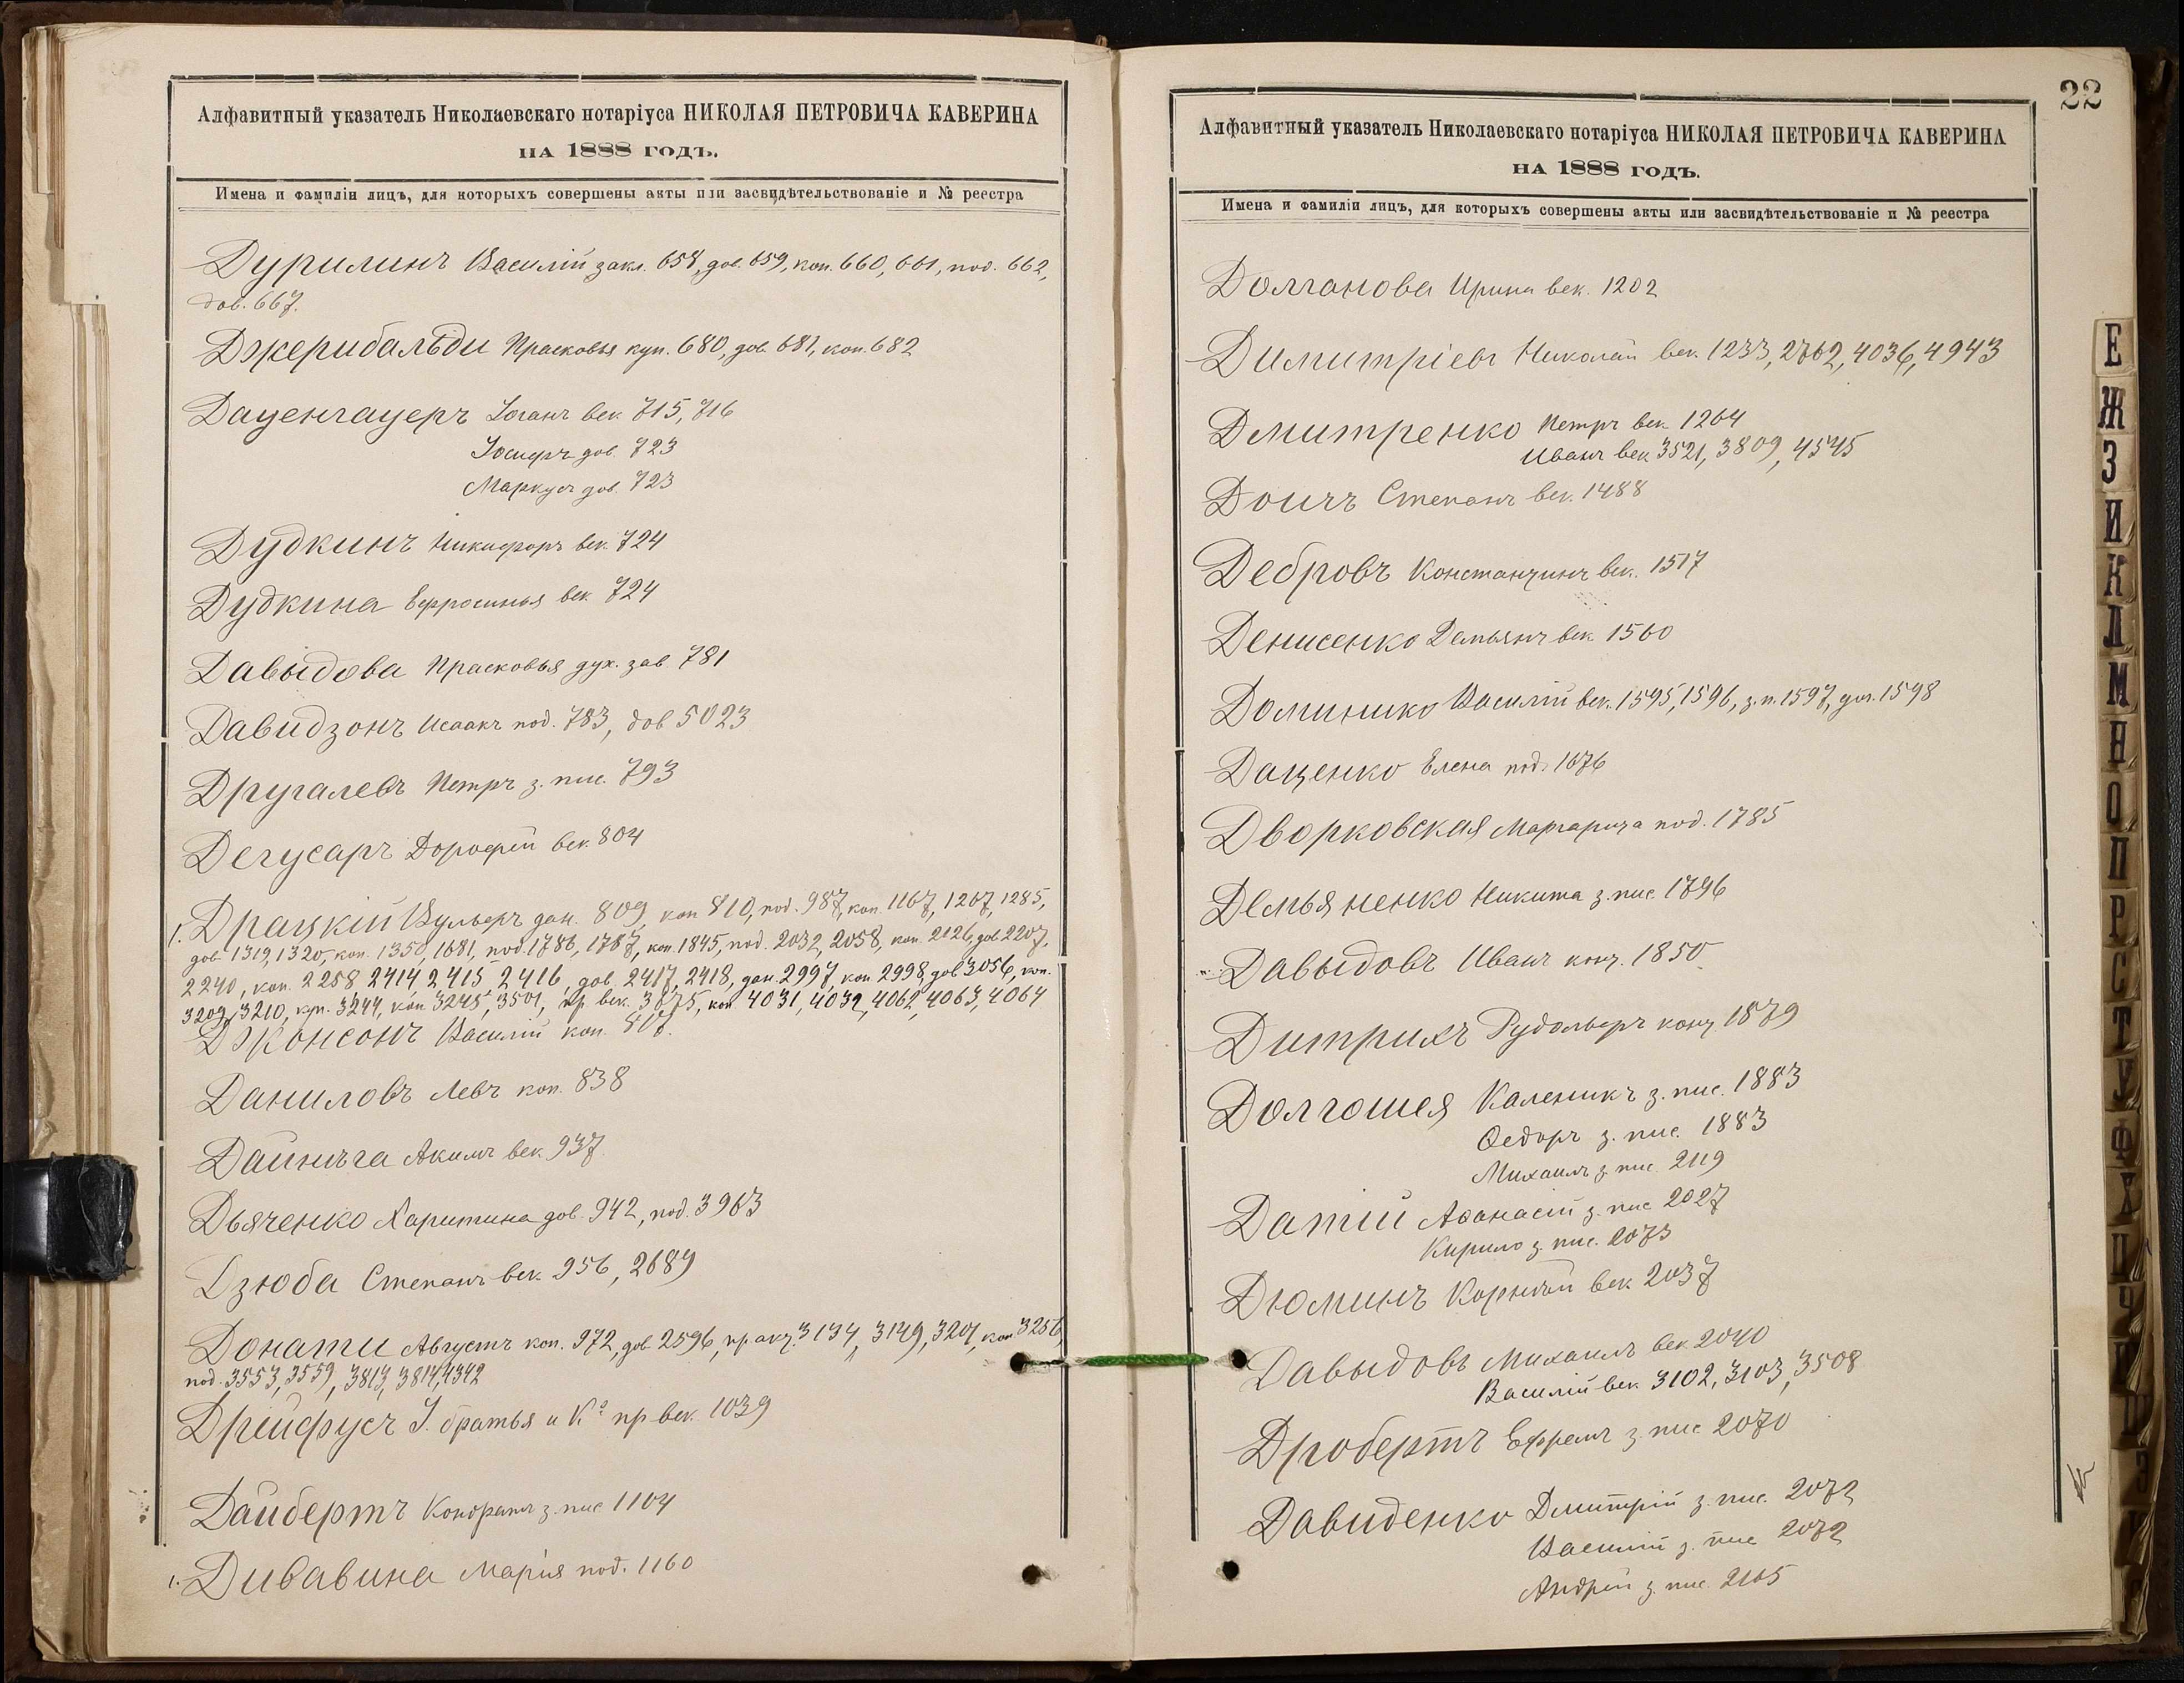 Алфавитный указатель Николаевскаго нотаріуса НИКОЛАЯ ПЕТРОВИЧА КАВЕРИНА
НА 1888 ГОДЪ.
Имена и фамиліи лицъ, для которыхъ совершены акты или засвидѣтельствованіе и № реестра
Дурилинъ Василій закл. 658, дов. 659, коп. 660, 661, под. 662,
дов. 667.
Джерибальди Прасковья куп. 680, дов. 681, коп. 682
Даценгауеръ Іоганъ век. 715, 716
Іосифъ дов. 723
Маркусъ дов. 723
Дудкинъ Никифоръ век. 724
Дудкина Ефросинья век. 724
Давыдова Прасковья дух. зав. 781
Давидзонъ Исаакъ под. 783, дов 5023
Другалевъ Петръ з. пис. 793
Дегусаръ Дорофей век. 804
1. Драцкій Вульфъ дан. 809, коп 810, под. 987, коп. 1167, 1267, 1285,
дов. 1319, 1320, коп. 1350, 1681, под. 1786, 1787, коп. 1845, под. 2032, 2058, коп. 2126, дов. 2207,
2240, коп. 2258 2414, 2415, 2416, дов. 2417, 2418, дан. 2997, коп. 2998, дов 3056, коп.
3209, 3210, куп. 3244, коп 3245, 3501, пр. век. 3675, коп 4031, 4032, 4062, 4063, 4064
Джонсонъ Василій коп. 817.
Даниловъ Левъ коп. 838
Дайнъга Акимъ век. 937
Дьяченко Харитина дов. 942, под. 3963
Дзюба Степанъ век. 956, 2689
Донати Августъ коп. 972, дов. 2596, пр акц. 3134, 3149, 3201, коп 3256,
под. 3553, 3559, 3813, 3814, 4342
Дрейфусъ І. братья и Кº пр век. 1039
Дайбертъ Кондратъ з. пис 1104
1. Дивавина Марія под. 1160
22
Алфавитный указатель Николаевскаго нотаріуса НИКОЛАЯ ПЕТРОВИЧА КАВЕРИНА
НА 1888 ГОДЪ.
Имена и фамиліи лицъ, для которыхъ совершены акты или засвидѣтельствованіе и № реестра
Долганова Ирина век. 1202
Димитріевъ Николай век. 1233, 2762, 4036, 4943
Дмитренко Петръ век. 1264
Иванъ век 3521, 3809, 4545
Доичъ Степанъ век. 1488
Дебровъ Константинъ век. 1517
Денисенко Демьянъ век. 1560
Доминико Василій век. 1595, 1596, з. п. 1597, дог. 1598
Даценко Елена под. 1676
Дворковская Маргарита под. 1785
Демьяненко Никита з. пис. 1796
Давыдовъ Иванъ конт. 1850
Дитрихъ Рудольфъ конт 1879
Долгошея Каленикъ з. пис. 1883
Ѳедоръ з. пис. 1883
Михаилъ з. пис. 2119
Датій Аѳанасій з. пис 2027
Кирило з. пис. 2073
Дюминъ Корнѣй век 2037
Давыдовъ Михаилъ век 2040
Василій век. 3102, 3103, 3508
Дробертъ Ефремъ з. пис 2070
Давиденко Дмитрій з. пис. 2072
Василій з. пис 2072
Андрей з. пис. 2165
Е
Ж
З
И
К
Л
М
Н
О
П
Р
С
Т
У
Ф
Х
Ц
Ч